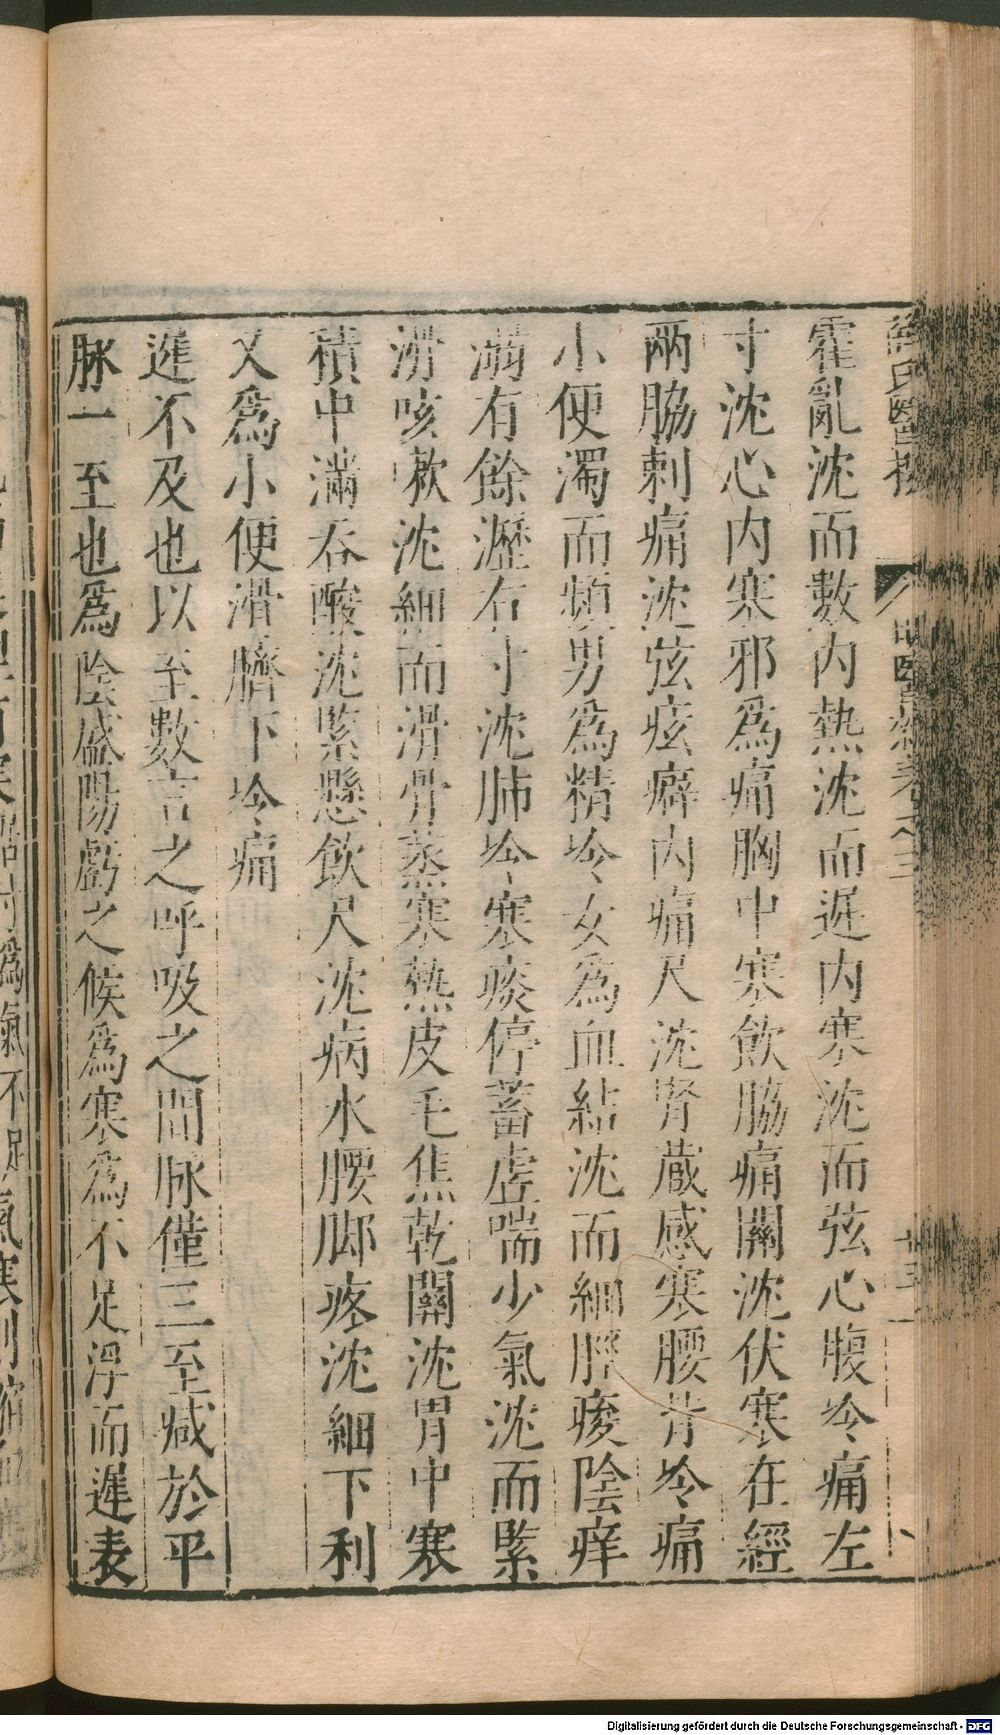 霍亂沈而數內熱沈而遲內寒沈而弦心腹冷痛左
寸沈心内寒邪爲痛胸中寒飲脇痛關沈伏寒在經
兩脇刺痛沈弦痃癖内痛尺沈腎藏感寒腰背冷痛
小便濁而頻男爲精冷女爲血結沈而細脛痠陰痒
溺有餘瀝右寸沈肺冷寒痰停蓄虛喘少氣沈而緊
滑咳嗽沈細而滑骨蒸寒熱皮毛焦乾關沈胃中寒
積中滿吞酸沈緊懸飲尺沈病水腰脚疼沈細下利
又爲小便滑臍下冷痛
遲不及也以至數言之呼吸之間脉僅三至减於平
脉一至也爲陰盛陽虧之候爲寒爲不足浮而遲表
Digitalisierung gefördert durch die Deutsche Forschungsgemeinschaft - DFG